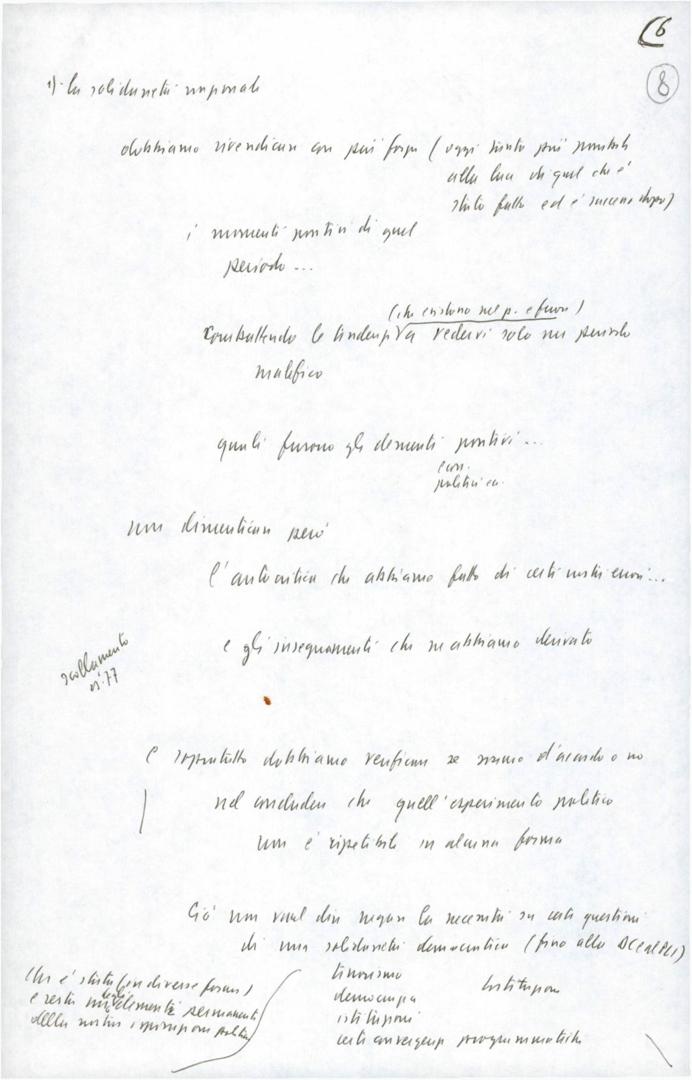 6
8
1) la solidarietà nazionale
dobbiamo rivendicare con più forza (oggi tanto più
alla luce di quel che è
stato fatto ed è successo dopo)
i momenti positivi di quel
periodo...
(che esistono nel p. e fuori)
combattendo le tendenze a vedervi solo un periodo
malefico
quali furono gli elementi positivi...
econ.
politica ec.
non dimenticare però
l'autocritica che abbiamo fatto di certi nostri errori...
e gli insegnamenti che ne abbiamo derivato
scollamento
'77
e soprattutto dobbiamo verificare se siamo d'accordo o no
nel concludere che quell'esperimento politico
non è ripetibile in alcuna forma
Ciò non vuol dire negare la necessità su certe questioni
di una solidarietà democratica (fino alla DC e al PCI)
terrorismo
democrazia
istituzioni
certe convergenze programmatiche
Istituzioni
che è stata (in diverse forme)
e resta elementi permanenti
della nostra ispirazione politica